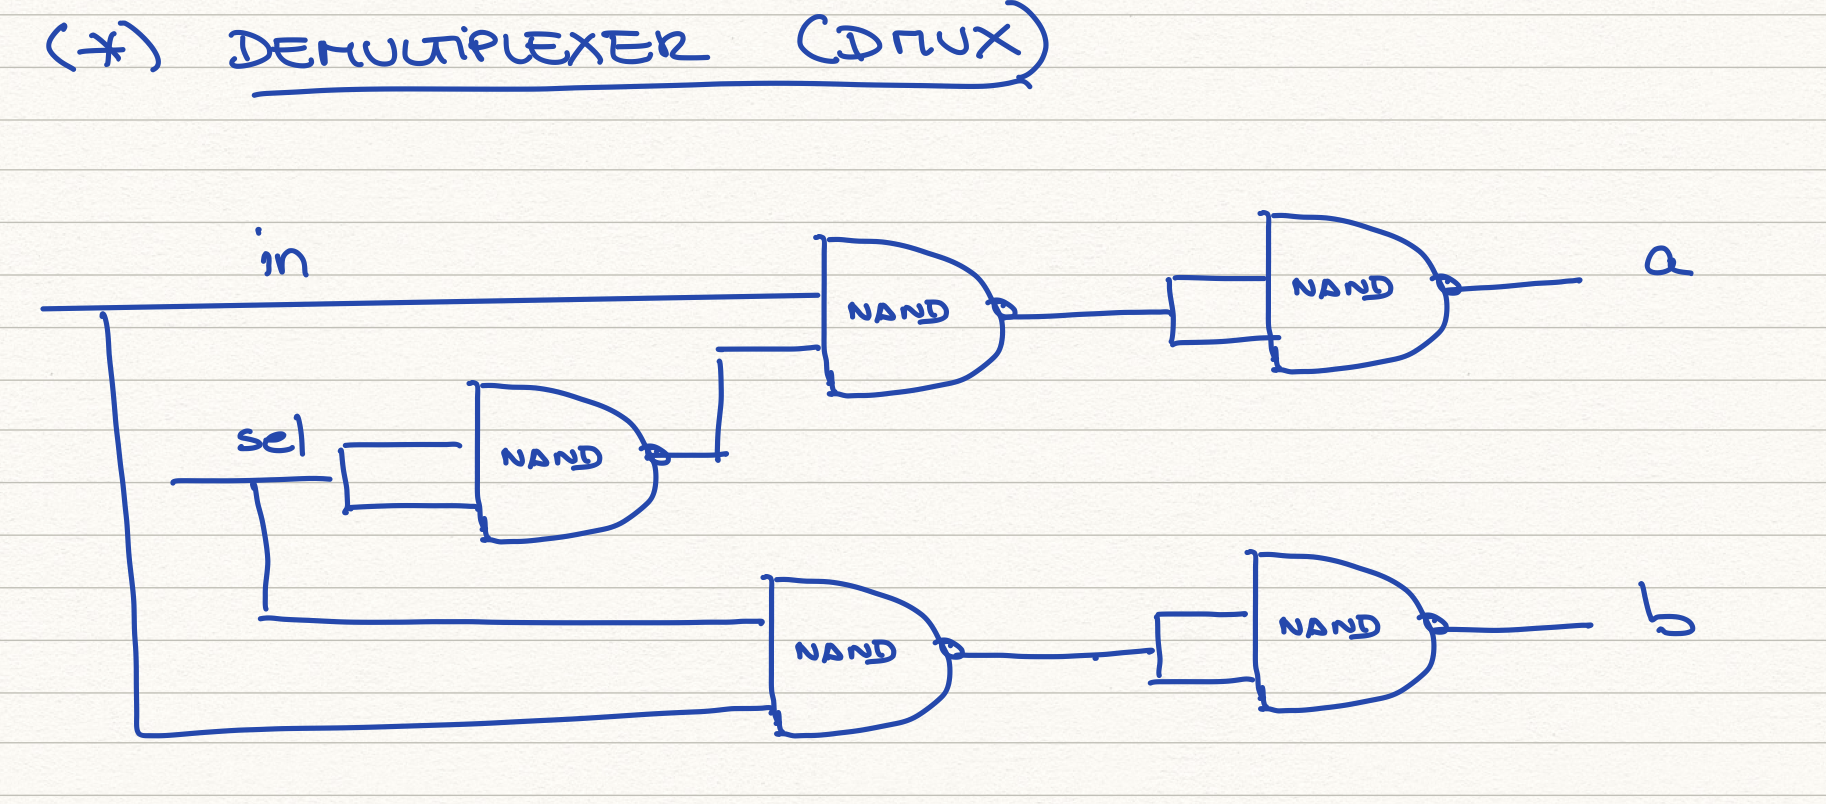 (*) DEMULTIPLEXER (DMUX)
in
NAND
NAND
a
sel
NAND
NAND
NAND
b